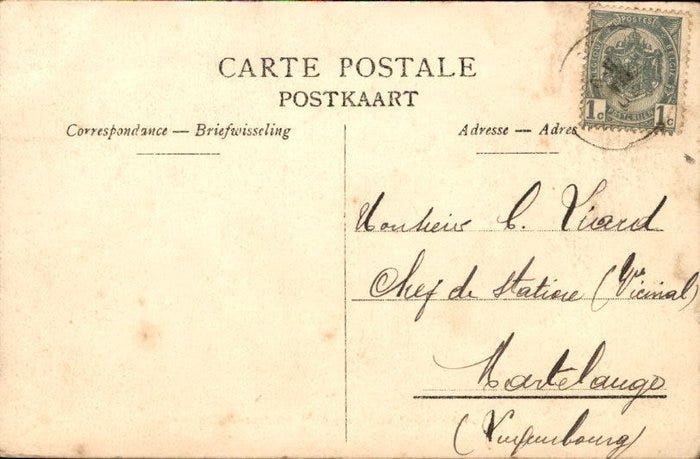 CARTE POSTALE
POSTKAART
Correspondance — Briefwisseling
Adresse — Adres
POSTES
1c 1c
Monsieur C. Viard
Chef de Station (Vicinal)
Martelange
(Luxembourg)